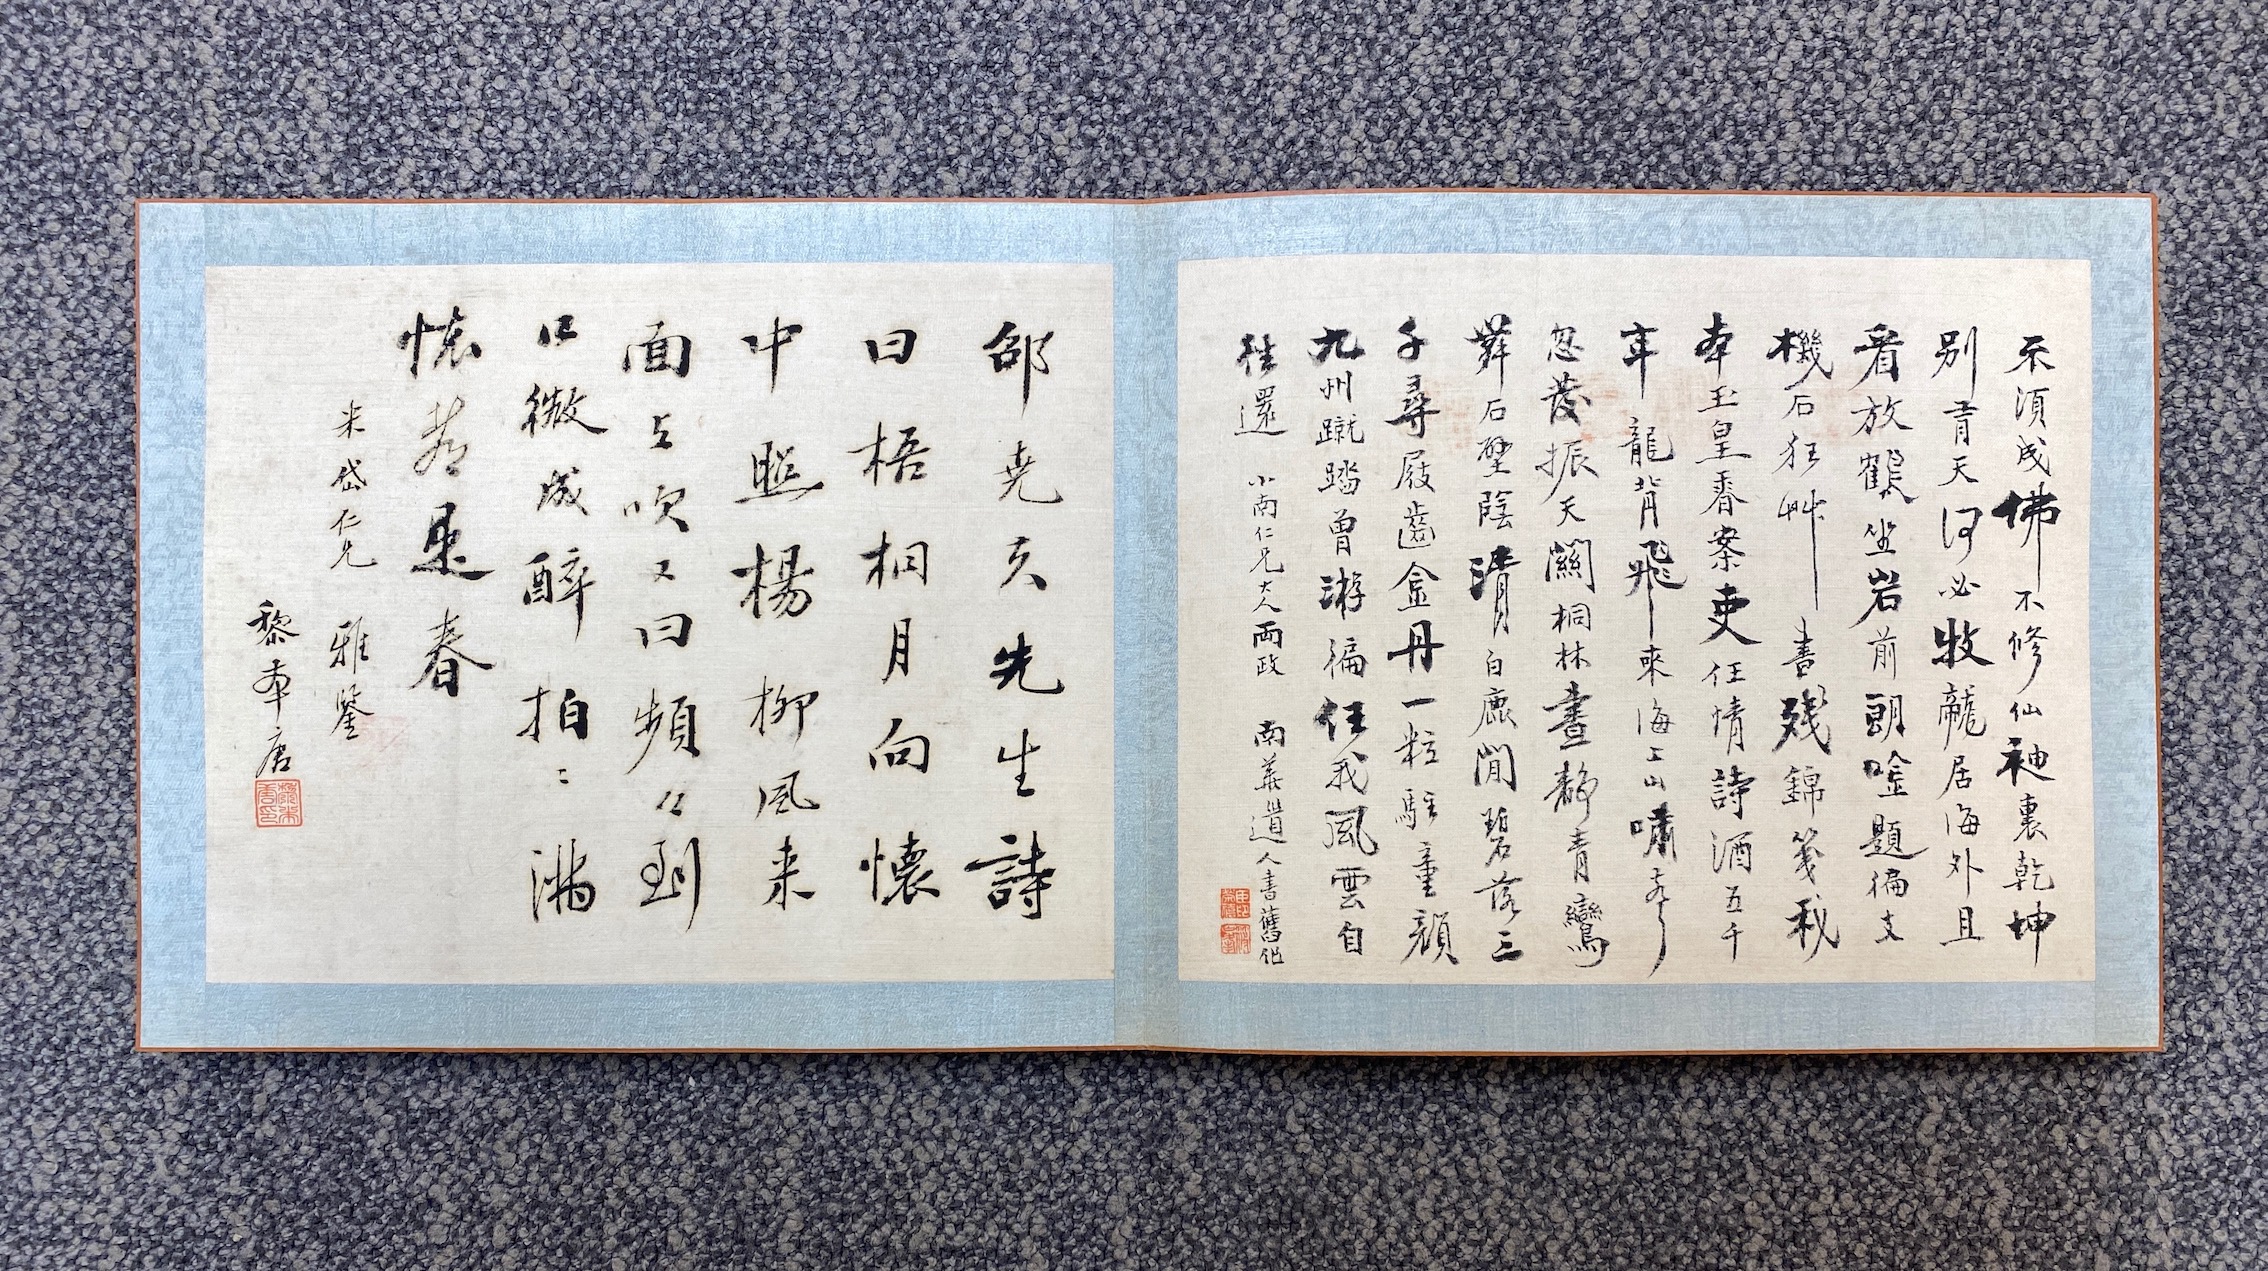 不須成佛不修仙袖裏乾坤
別有天何必牧龍居海外且
看放鶴坐岩前閒吟題徧支
機石狂艸書殘錦箋我
本玉皇香案吏任情詩酒五千
年龍背飛來海上山嘯聲
忽發振天關桐林晝靜青鸞
舞石壁陰清白鹿閒碧落三
千尋屐齒金丹一粒駐童顏
九州蹴踏曾游徧任我風雲自
往還
小南仁兄大人兩政 南華道人書舊作
邵堯夫先生詩
曰梧桐月向懷
中照楊柳風来
面上吹又曰頻々到
口微成醉拍二滿
懷都是春
米岱仁兄 雅鑒
黎奉唐